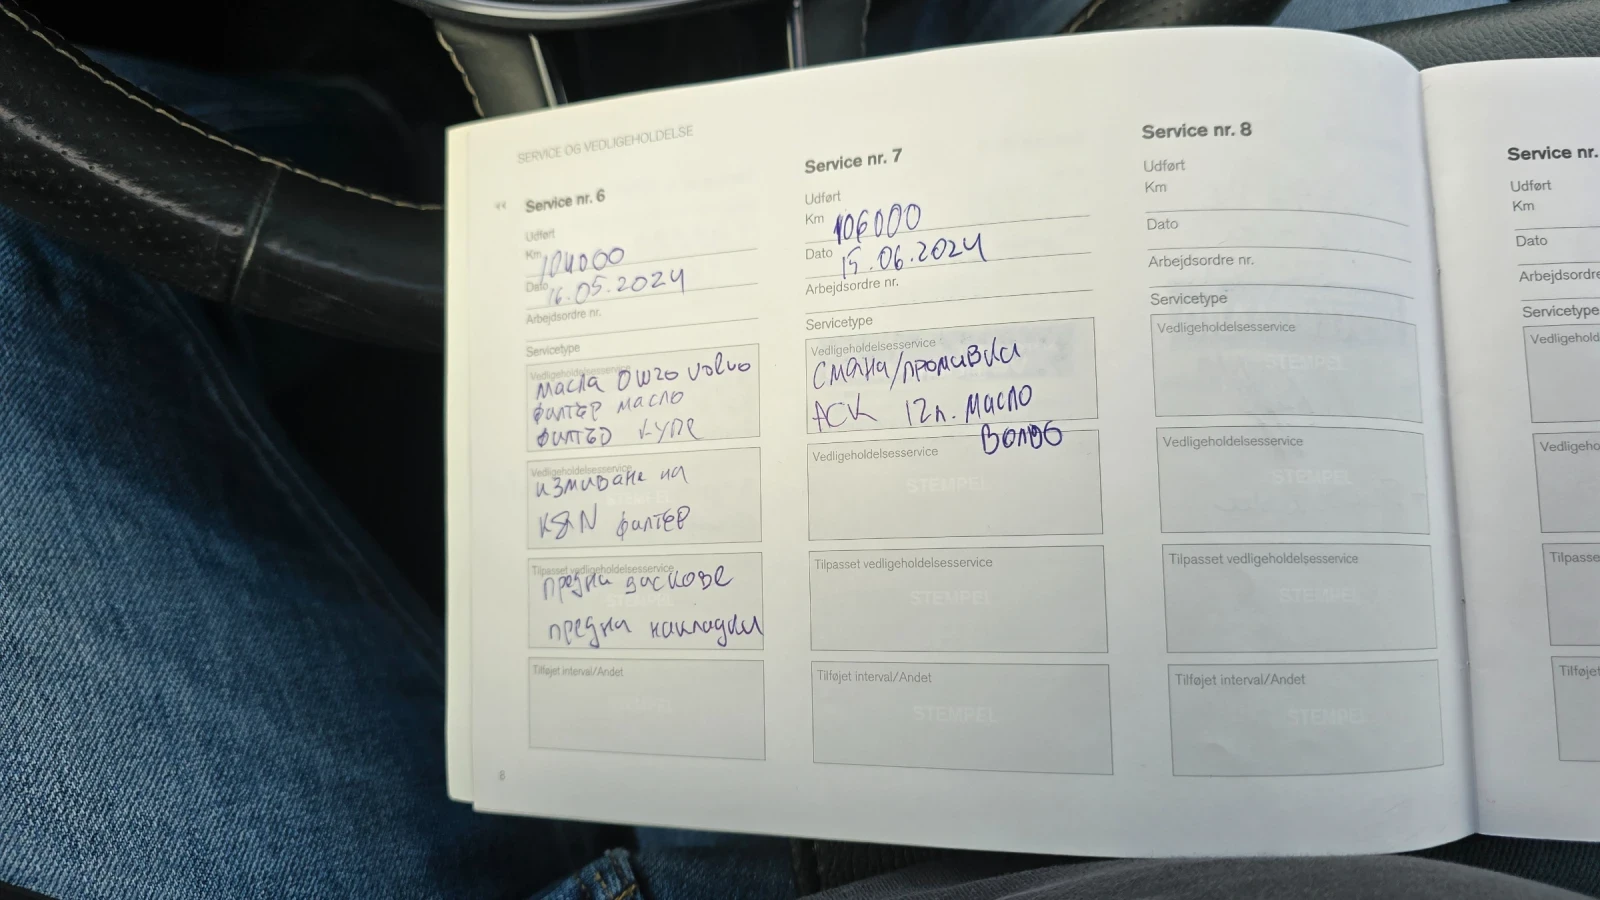 SERVICE OG VEDLIGEHOLDELSE
Service nr. 6
Udført
Km 104000
Dato 16.05.2024
Arbejdsordre nr.
Servicetype
Vedligeholdelsesservice
масла 0W20 Volvo
филтер масло
филтер купе
Vedligeholdelsesservice
измиване на
K&N филтер
Tilpasset vedligeholdelsesservice
STEMPEL
предни дискове
предни накладки
Tilføjet interval/Andet
STEMPEL
8
Service nr. 7
Udført
Km 106000
Dato 15.06.2024
Arbejdsordre nr.
Servicetype
Vedligeholdelsesservice
смяна/промивка
АСК 12л. масло
Волво
Vedligeholdelsesservice
STEMPEL
Tilpasset vedligeholdelsesservice
STEMPEL
Tilføjet interval/Andet
STEMPEL
Service nr. 8
Udført
Km
Dato
Arbejdsordre nr.
Servicetype
Vedligeholdelsesservice
STEMPEL
Vedligeholdelsesservice
STEMPEL
Tilpasset vedligeholdelsesservice
STEMPEL
Tilføjet interval/Andet
STEMPEL
Service nr.
Udført
Km
Dato
Arbejdsordre
Servicetype
Vedligehold
Vedligeho
Tilpasse
Tilføje